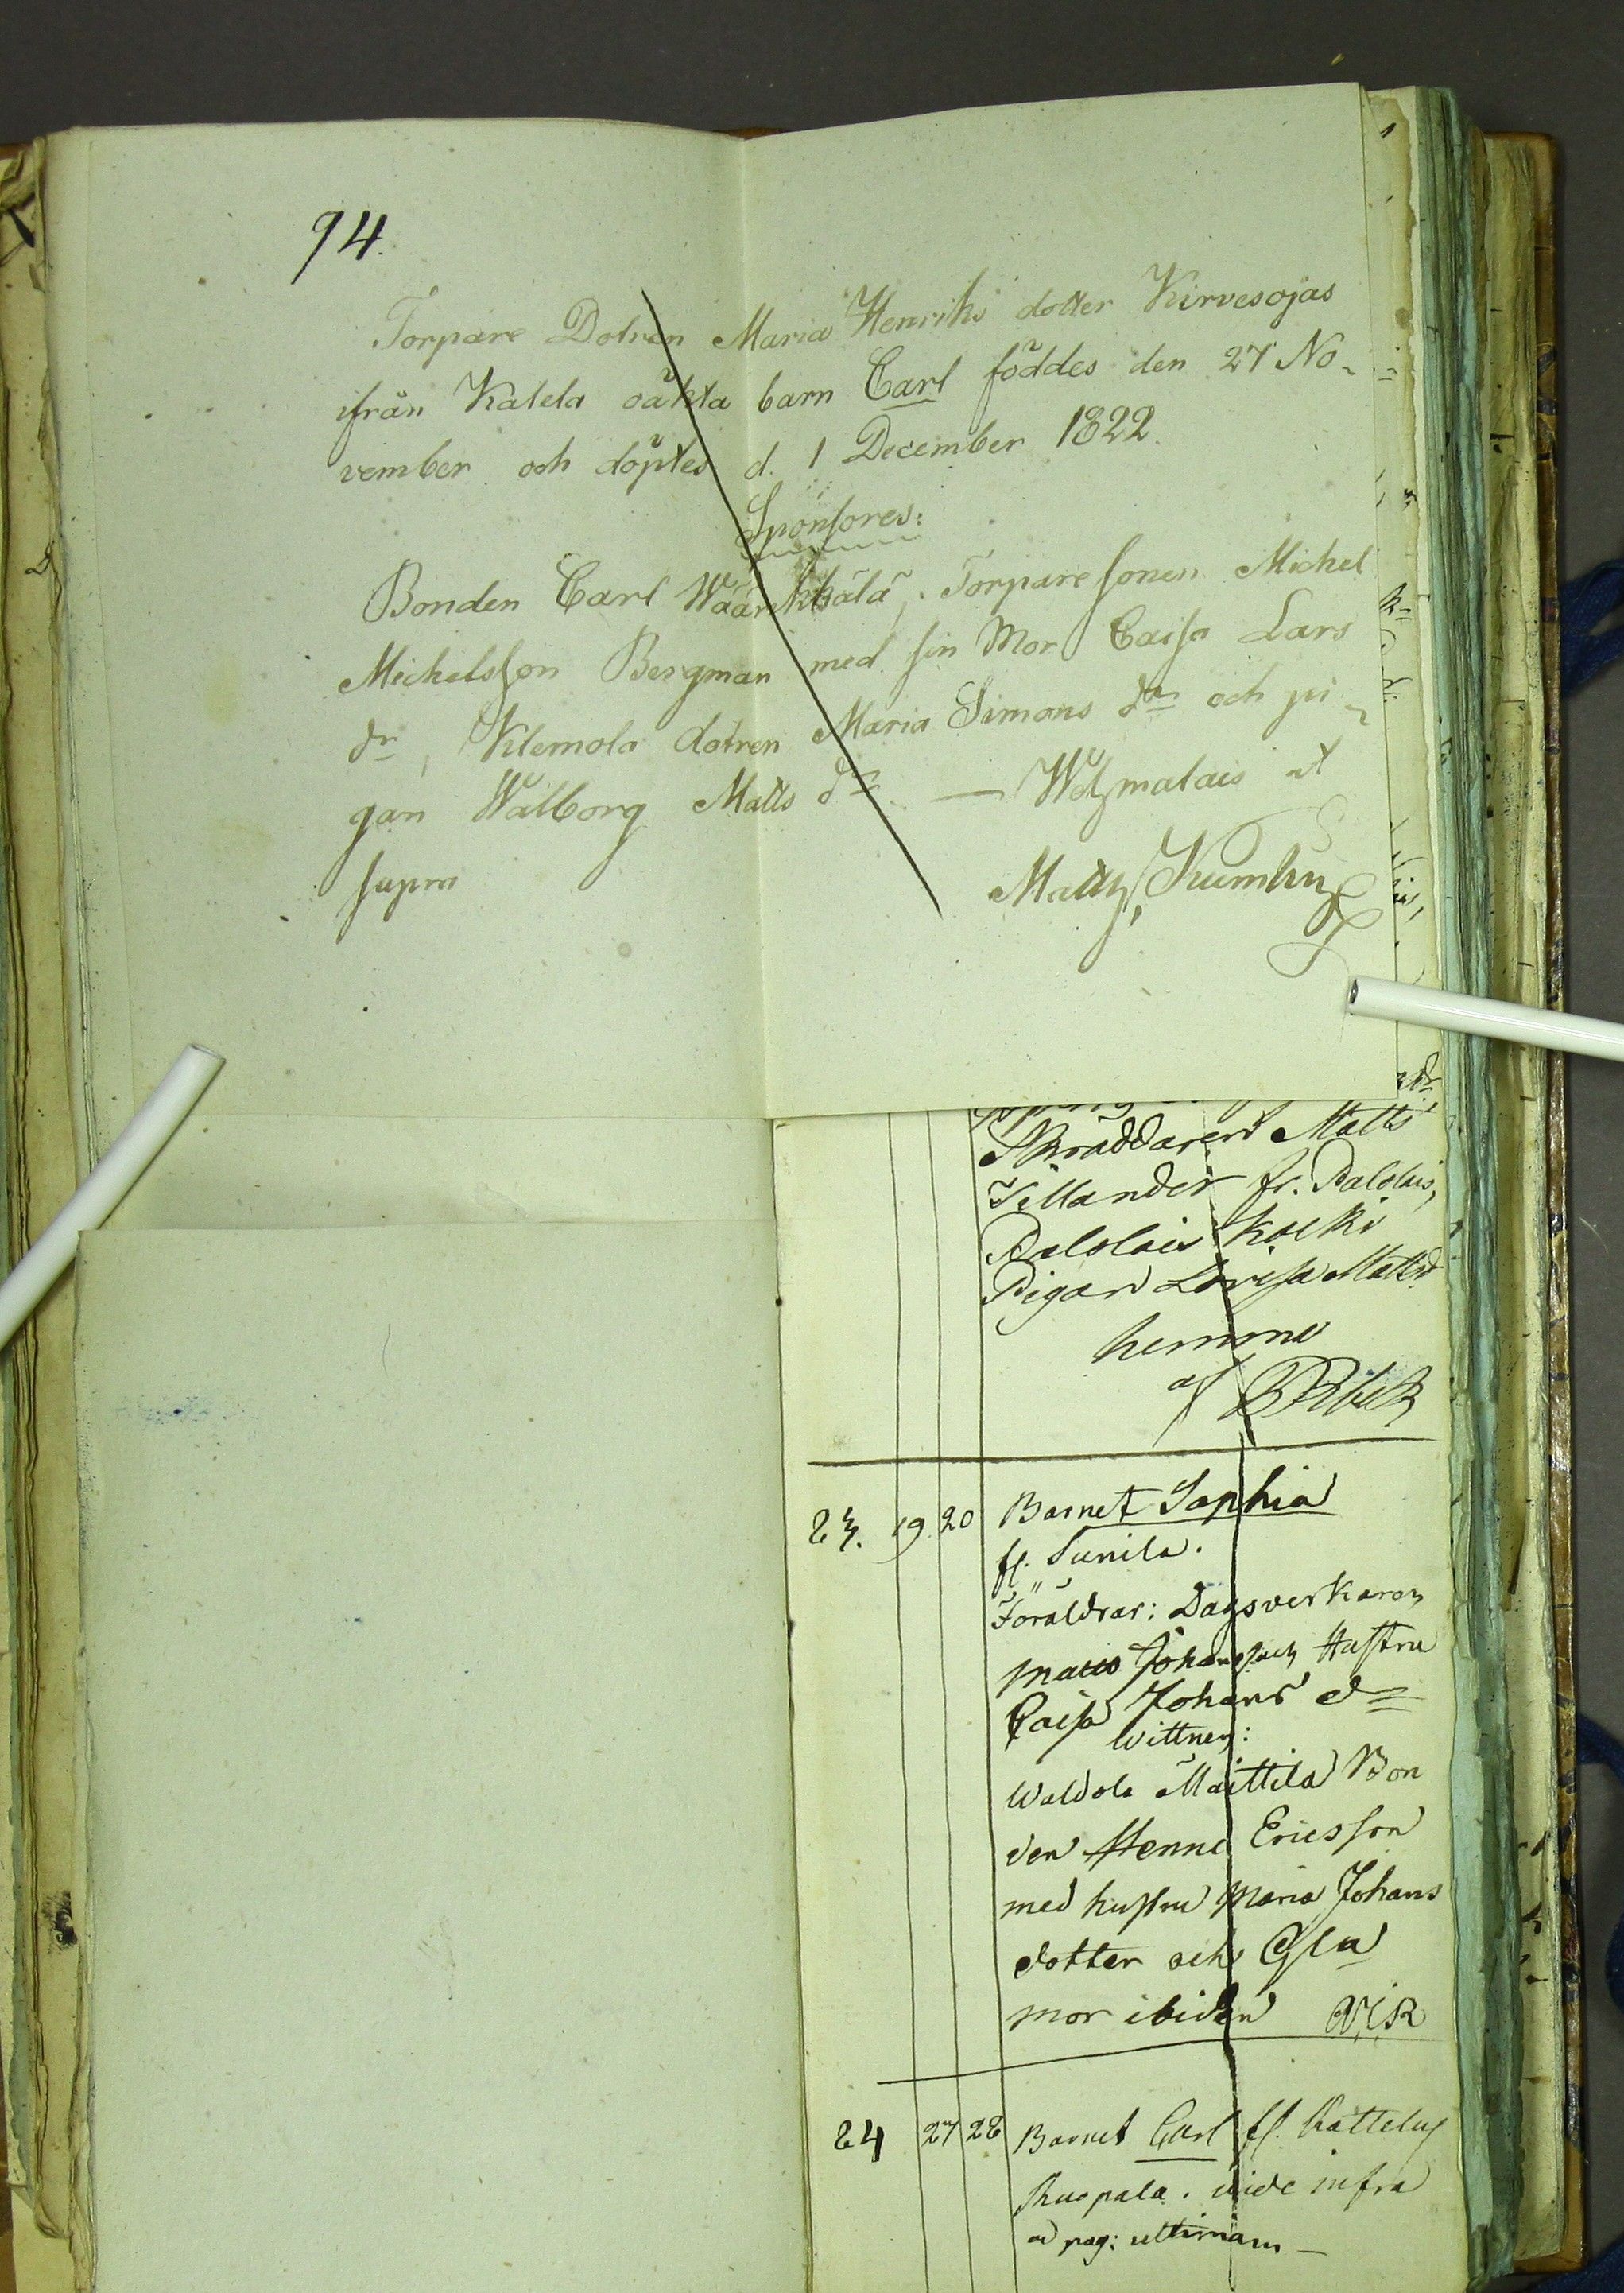 94.
Torpare Dotren Maria Henriks dotter Kirvesojas
ifrån Katela oäkta barn Carl föddes den 27 No-
vember och döptes d. 1 December 1822.
Sponsores:
Bonden Carl Torpare sonen Michel
Michelsson Bergman med sin Mor Caisa Lars
dr, Klemola dotren Maria Simons dr och pi-
gan Walborg Matts dr — ut
supra Matts
Skräddaren Matts
Tillander fr. Palolais,
Palolais Koski
Pigan Lovisa Mattsd
hemma
af
83. 19. 20 Barnet Sophia
fr. Sunila.
Föräldrar: Dagsverkaren
Matts Johansson Hustru
Caisa Johans dr
Wittnen:
Waldola Maittila Bon
den Ericsson
med hustru Maria Johans
dotter och
mor ibidem
84 27 28 Barnet Carl fr.
vide infra
ad pag: ultimam —